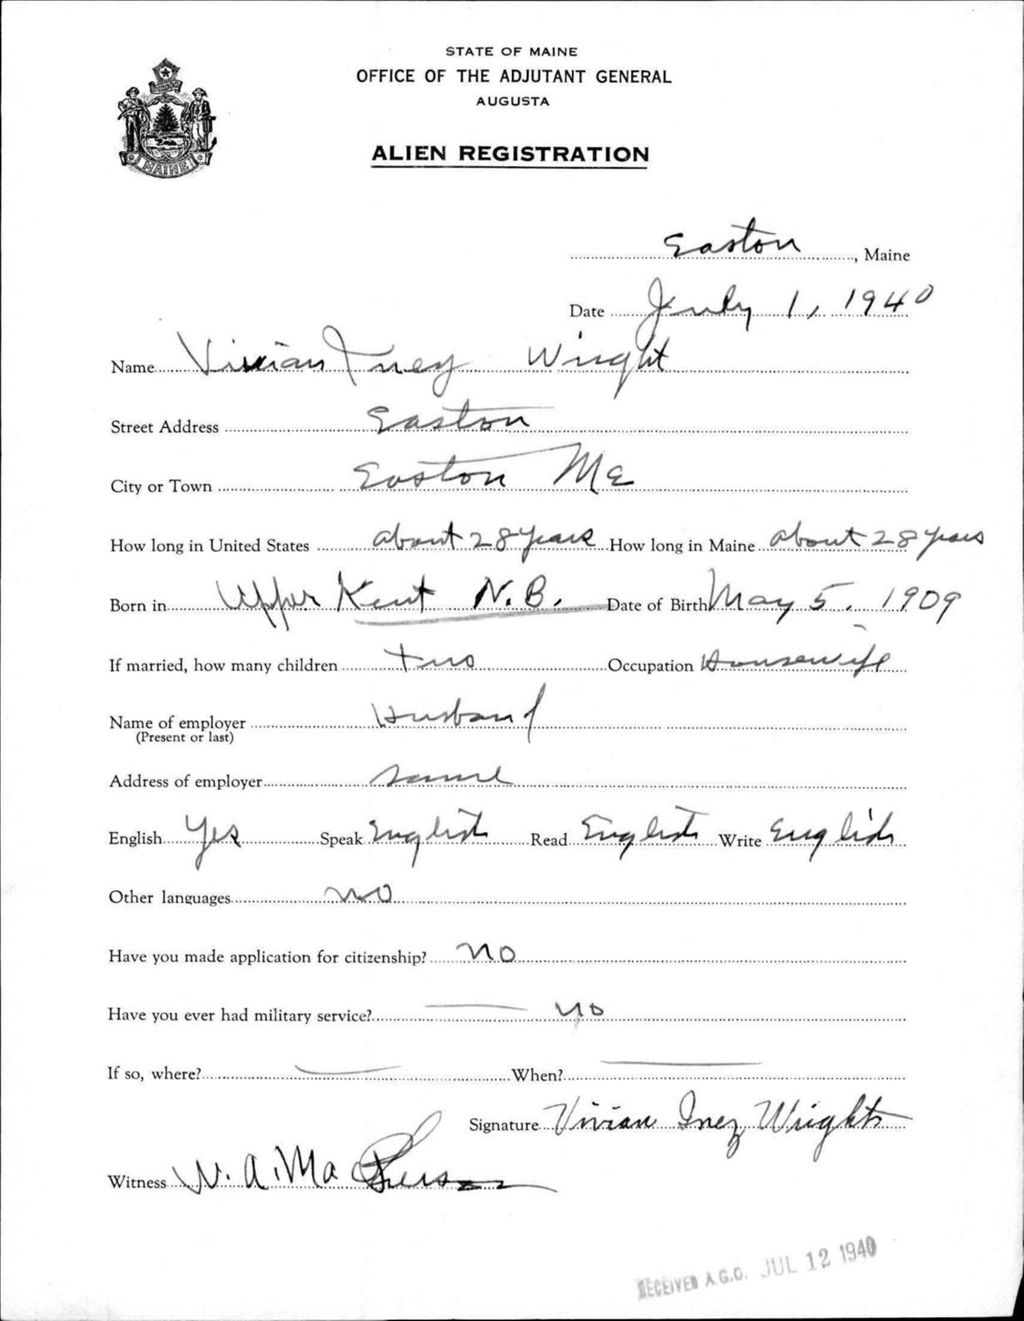 STATE OF MAINE
OFFICE OF THE ADJUTANT GENERAL
AUGUSTA
ALIEN REGISTRATION
MAINE
Easton, Maine
Date July 1, 1940
Name Vivian Inez Wright
Street Address Easton
City or Town Easton Me
How long in United States about 28 years How long in Maine about 28 years
Born in Upper Kent N.B. Date of Birth May 5, 1909
If married, how many children two Occupation Housewife
Name of employer Husband
(Present or last)
Address of employer same
English Yes Speak English Read English Write English
Other languages no
Have you made application for citizenship? no
Have you ever had military service? no
If so, where? When?
Signature Vivian Inez Wright
Witness W. A. MacPherson
RECEIVED A.G.O. JUL 12 1940